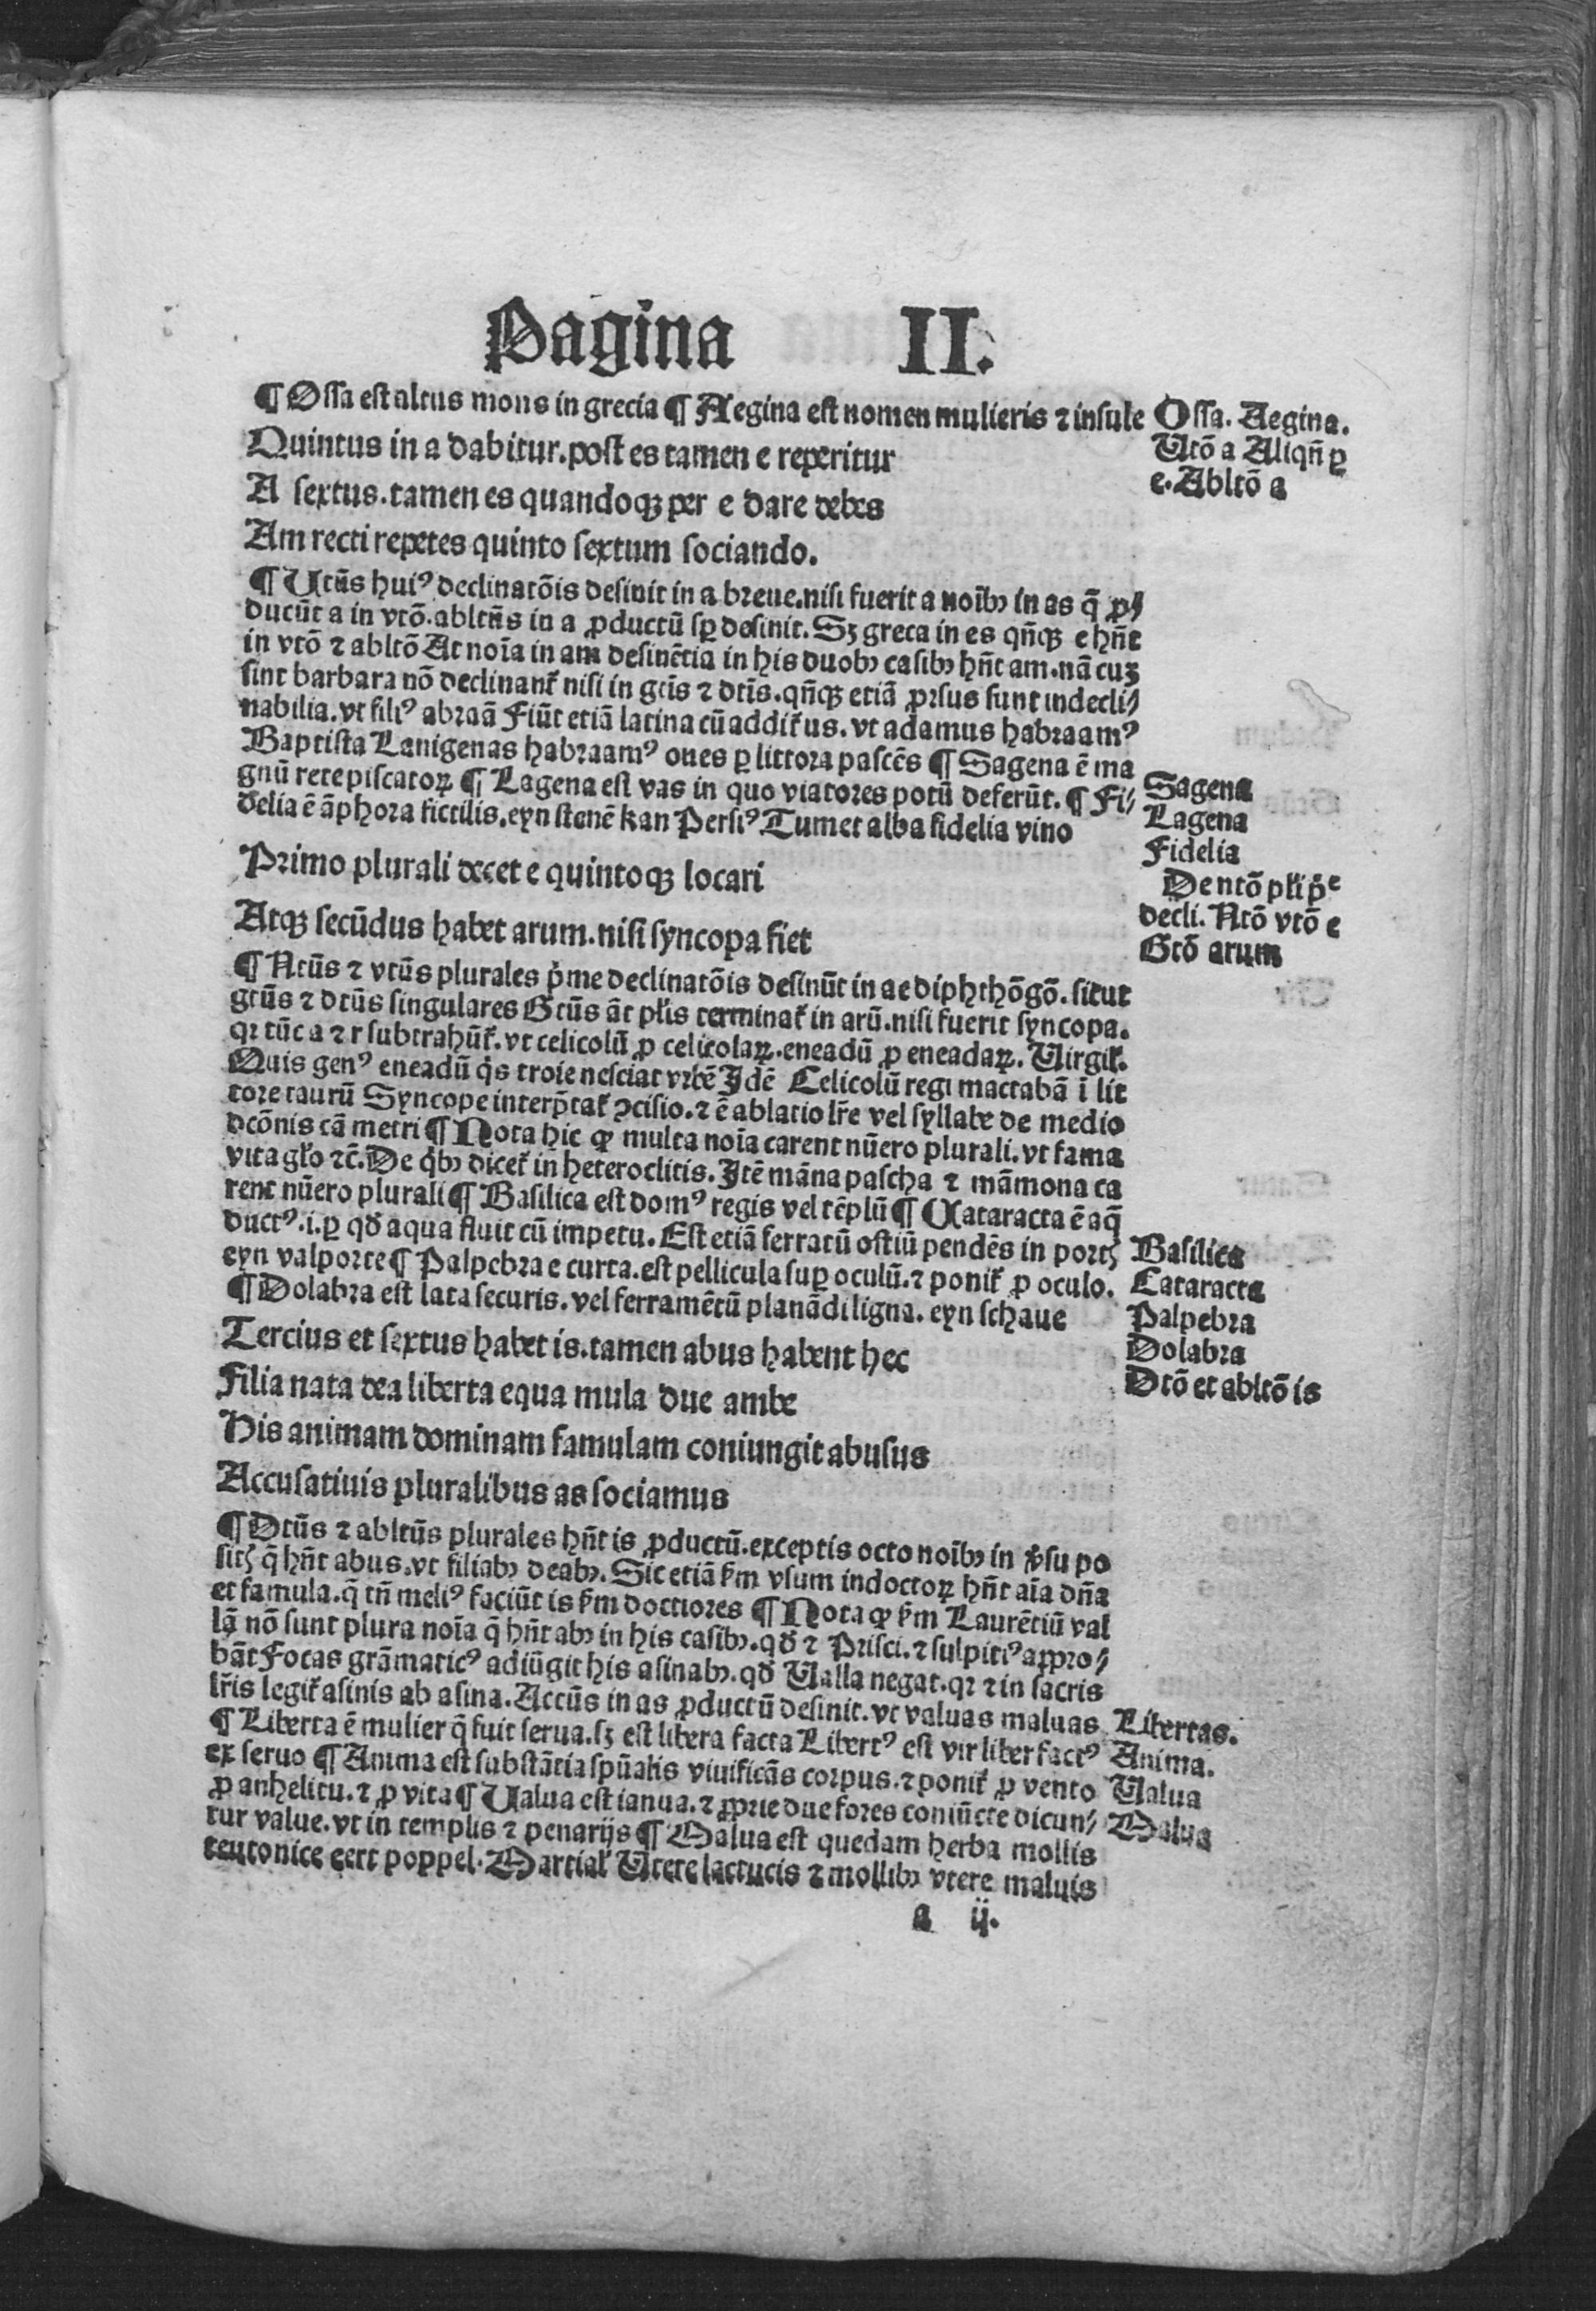 Pagina II.
¶ Ossa est altus mons in grecia ¶ Aegina est nomen mulieris ⁊ insule
Quintus in a dabitur. post es tamen e reperitur
A sextus. tamen es quandoqꝫ per e dare debes
Am recti repetes quinto sextum sociando.
¶ Utũs huiꝰ declinatõis desinit in a breue. nisi fuerit a noĩbꝫ in as q̃ ꝓ⸗
ducũt a in vtõ. abltũs in a ꝓductũ sꝑ desinit. Sꝫ greca in es qñqꝫ e hñt
in vtõ ⁊ abltõ At noĩa in am desinẽtia in his duobꝫ casibꝫ hñt am. nã cuꝫ
sint barbara nõ declinant᷑ nisi in gtĩs ⁊ dtĩs. qñqꝫ etiã ꝓrsus sunt indecli⸗
nabilia. vt filiꝰ abraã Fiũt etiã latina cũ addit᷑ us. vt adamus habraamꝰ
Baptista Lanigenas habraamꝰ oues ꝑ littora pascẽs ¶ Sagena ẽ ma
gnũ rete piscatoꝝ ¶ Lagena est vas in quo viatores potũ deferũt. ¶ Fi⸗
delia ẽ ãphora fictilis. eyn stenẽ kan Persiꝰ Tumet alba fidelia vino
Primo plurali decet e quintoqꝫ locari
Atqꝫ secũdus habet arum. nisi syncopa fiet
¶ Ntũs ⁊ vtũs plurales p̾me declinatõis desinũt in ae diphthõgõ. sicut
gtũs ⁊ dtũs singulares Gtũs ãt pl̃is terminat᷑ in arũ. nisi fuerit syncopa.
qꝛ tũc a ⁊ r subtrahũt᷑. vt celicolũ ꝓ celicolaꝝ. eneadũ ꝓ eneadaꝝ. Uirgil̃.
Quis genꝰ eneadũ q̾s troie nesciat vrbẽ Jdẽ Celicolũ regi mactabã ĩ lit
tore taurũ Syncope interp̃tat᷑ ꝯcisio. ⁊ ẽ ablatio lr̃e vel syllabe de medio
dcõnis cã metri ¶ Nota hic ꝙ multa noĩa carent nũero plurali. vt fama
vita gl̃o ⁊c̃. De q̾bꝫ dicet᷑ in heteroclitis. Jtẽ mãna pascha ⁊ mãmona ca
rent nũero plurali ¶ Basilica est domꝰ regis vel tẽplũ ¶ Cataracta ẽ aq̃
ductꝰ. i. ꝑ qđ aqua fluit cũ impetu. Est etiã ferratũ ostiũ pendẽs in portꝭ
eyn valporte ¶ Palpebra e curta. est pellicula suꝑ oculũ. ⁊ ponit᷑ ꝓ oculo.
¶ Dolabra est lata securis. vel ferramẽtũ planãdi ligna. eyn schaue
Tercius et sextus habet is. tamen abus habent hec
Filia nata dea liberta equa mula due ambe
His animam dominam famulam coniungit abusus
Accusatiuis pluralibus as sociamus
¶ Dtũs ⁊ abltũs plurales hñt is ꝓductũ. exceptis octo noĩbꝫ in v̾su po
sitꝭ q̃ hñt abus. vt filiabꝫ deabꝫ. Sic etiã ẜm vsum indoctoꝝ hñt aĩa dña
et famula. q̃ tñ meliꝰ faciũt is ẜm doctiores ¶ Nota ꝙ ẜm Laurẽtiũ val
lã nõ sunt plura noĩa q̃ hñt abꝫ in his casibꝫ. qđ ⁊ Prisci. ⁊ sulpitiꝰ appro⸗
bãt Focas grãmaticꝰ adiũgit his asinabꝫ. qđ Ualla negat. qꝛ ⁊ in sacris
lr̃is legit᷑ asinis ab asina. Accũs in as ꝓductũ desinit. vt valuas maluas
¶ Liberta ẽ mulier q̃ fuit serua. sꝫ est libera facta Libertꝰ est vir liber factꝰ
ex seruo ¶ Anima est substãtia spũalis viuificãs corpus. ⁊ ponit᷑ ꝓ vento
ꝓ anhelitu. ⁊ ꝓ vita ¶ Ualua est ianua. ⁊ ꝓprie due fores coniũcte dicun⸗
tur value. vt in templis ⁊ penarijs ¶ Malua est quedam herba mollis
teutonice eert poppel. Martial̃ Utere lactucis ⁊ mollibꝫ vtere maluis
a ij.
Ossa. Aegina.
Utõ a Aliqñ ꝑ
e. Abltõ a
Sagena
Lagena
Fidelia
De ntõ pl̃i p̾e
decli. Ntõ vtõ e
Gtõ arum
Basilica
Cataracta
Palpebra
Dolabra
Dtõ et abltõ is
Libertas.
Anima.
Ualua
Malua